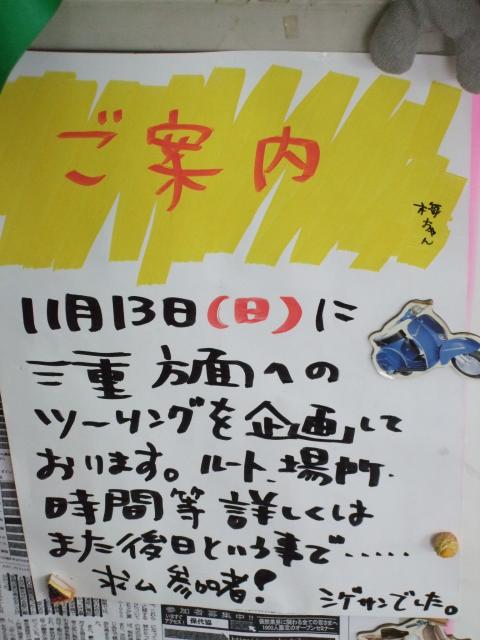 ご案内
梅ちゃん
11月13日(日)に
三重方面への
ツーリングを企画して
おります。ルート、場所、
時間等詳しくは
また後日という事で.....
求ム参加者!
シゲサンでした。
参加者募集中!!
保代協